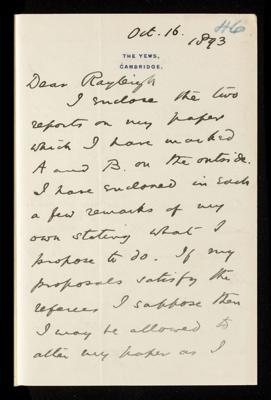 Oct. 16. 46
1893
THE YEWS,
CAMBRIDGE.
Dear Rayleigh
I enclose the two
reports on my paper
which I have marked
A and B. on the outside.
I have enclosed in each
a few remarks of my
own stating what I
propose to do. If my
proposals satisfy the
referees I suppose then
I may be allowed to
alter my paper as I